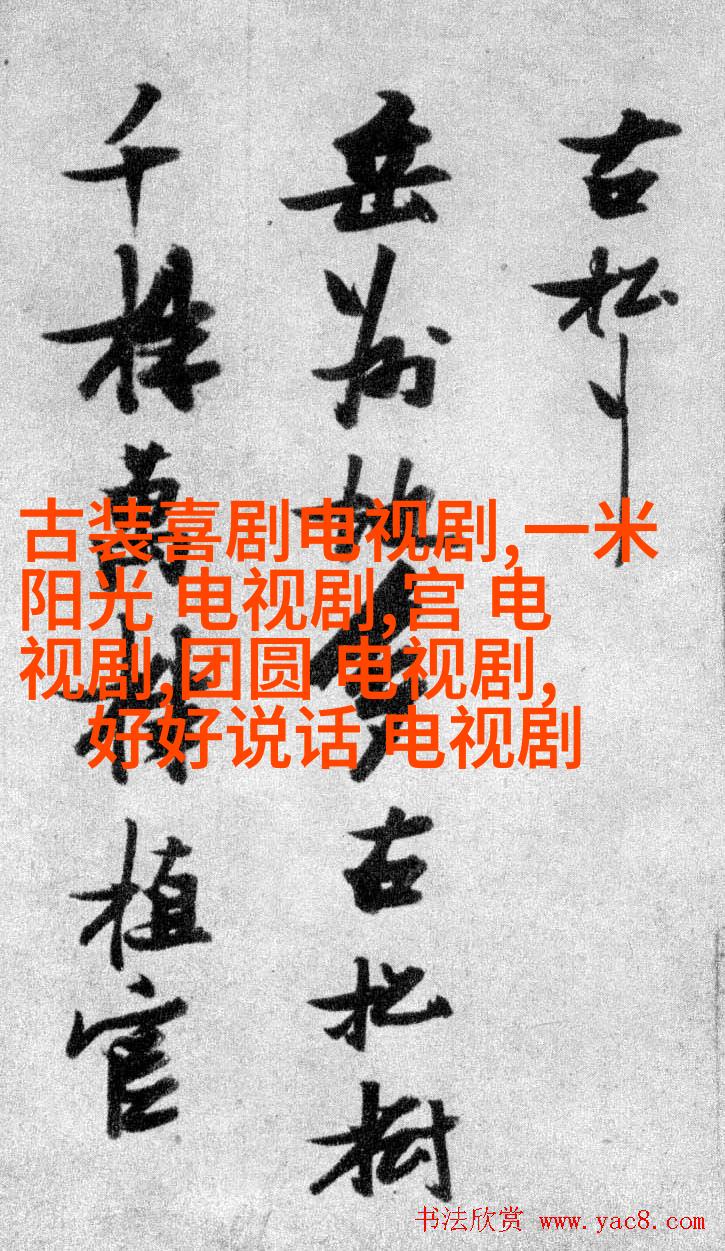 古松
岳州地多古松樹
千株萬株植官
古装喜剧电视剧,一米
阳光 电视剧,宫 电
视剧,团圆 电视剧,
好好说话 电视剧
书法欣赏 www.yac8.com